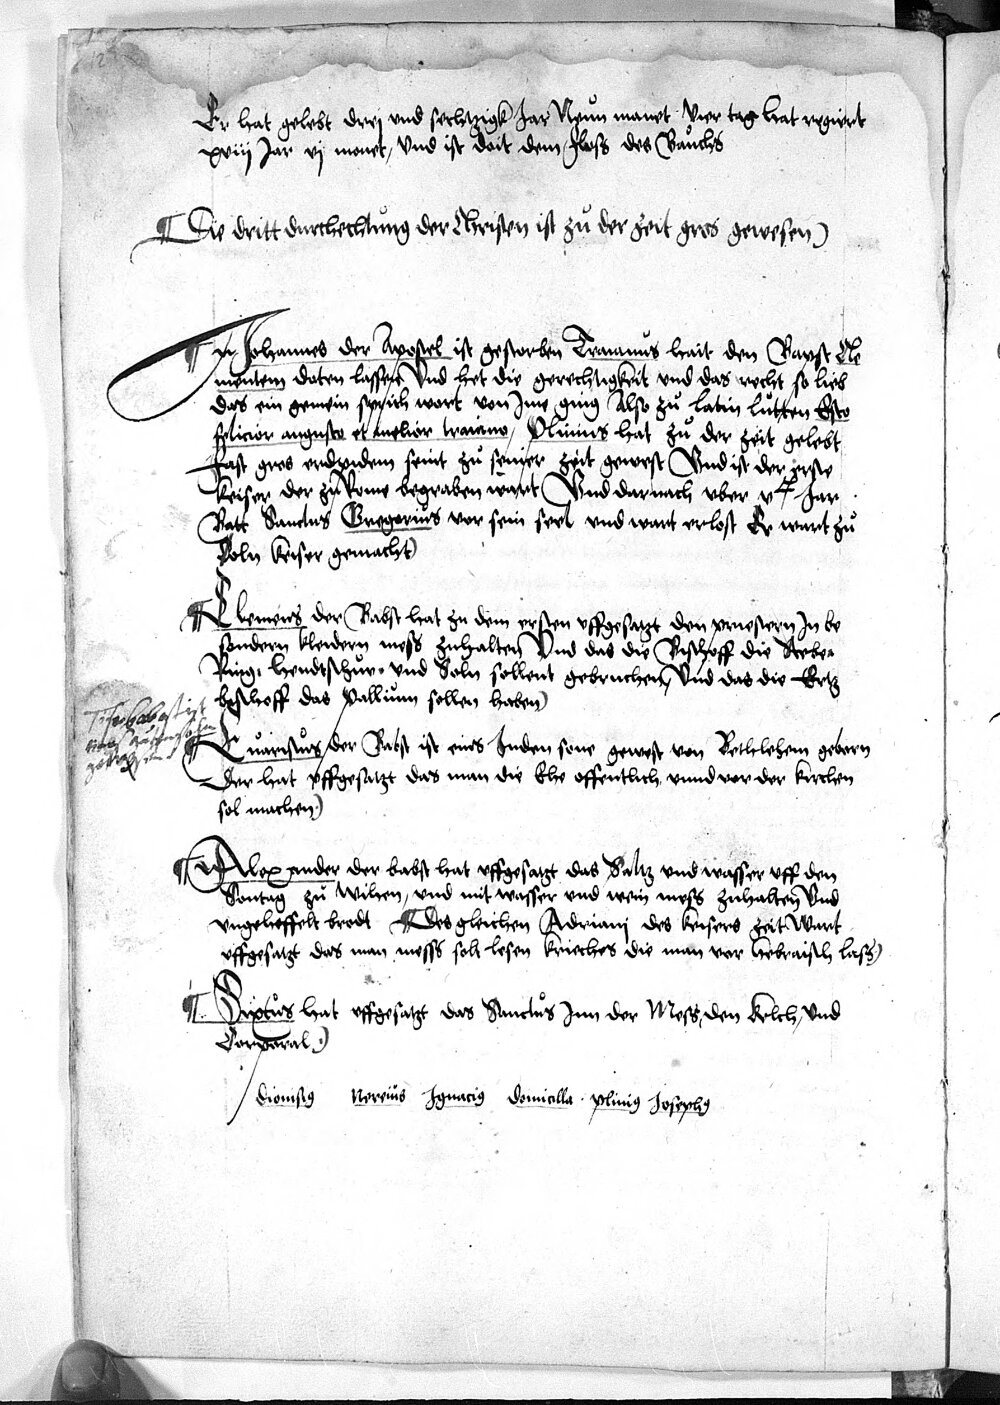 Er hat gelebt drej vnd sechtzigk Jar Neun monet vier tag hat regiert
xviij Jar vj monet, Vnd ist doit dem floss des Bauchs
¶ Die dritt durchechtung der Christen ist zu der zeit gros gewesen)
¶ Johannes der Apostel ist gestorben Traianus hait den Bapst Cle
mentem doten lassen Vnd het die gerechtigkeit vnd das recht so lieb
das ein gemein sprich wort von Ime ging Also zu latin lutten Esto
felicior augusto et melior traiano, Plinius hat zu der zeit gelebt
Fast gros erdpidem seint zu seiner zeit gewest Vnd ist der erste
keiser der zu Rome begraben wart Vnd darnach vber Jar
Batt Sanctus Gregorius vor sein seel vnd wart erlost Er wart zu
Coln keiser gemacht)
¶ Clemens der Babst hat zu dem ersten vffgesatzt den priestern In be
sondern kleidern mess zuhalten Vnd das die Bischoff die Stebe,
Ring, hendtschuw, vnd Soln sollent gebruchen, Vnd das die Ertz
bischoff das Pallium sollen haben)
babst ist
¶ Euaristus, der Babst ist eins Juden sone gewest von Bethlehem geborn
Der hat vffgesatzt das man die Ehe offentlich vnnd vor der kirchen
sol machen)
¶ Alexander der babst hat vffgesatzt das Saltz vnd wasser vff den
Sontag zu wihen, vnd mit wasser vnd wein mess zuhalten Vnd
vngeheffelt brodt ¶ Desgleichen Adriani des keisers zeit Wart
vffgesatzt das man messs solt lesen krieches die man vor hebraisch lass)
¶ Sixtus hat vffgesatzt das Sanctus Inn der Mess, den kelch, Vnd
Corporal)
dionisius Nereius Ignacius domicilla plinius Josephus